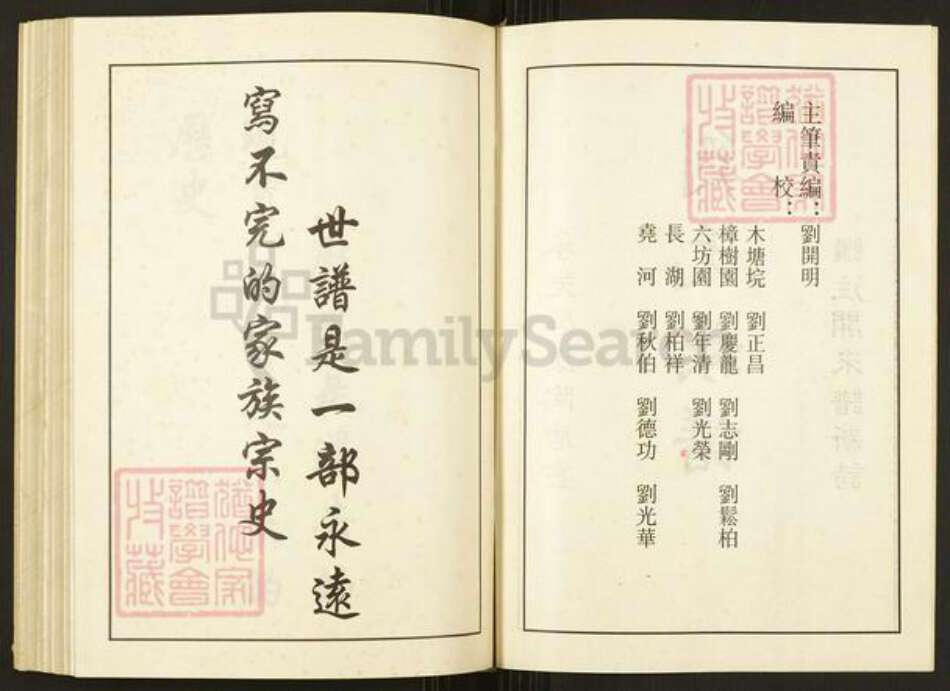 主筆責編：劉開明
編　　校：
木塘垸　劉正昌
樟樹園　劉慶龍　劉志剛　劉鬆柏
六坊園　劉年清　劉光榮
長　湖　劉柏祥
堯　河　劉秋伯　劉德功　劉光華
世譜是一部永遠
寫不完的家族宗史
FamilySearch
譜學會
收藏
譜學會
收藏